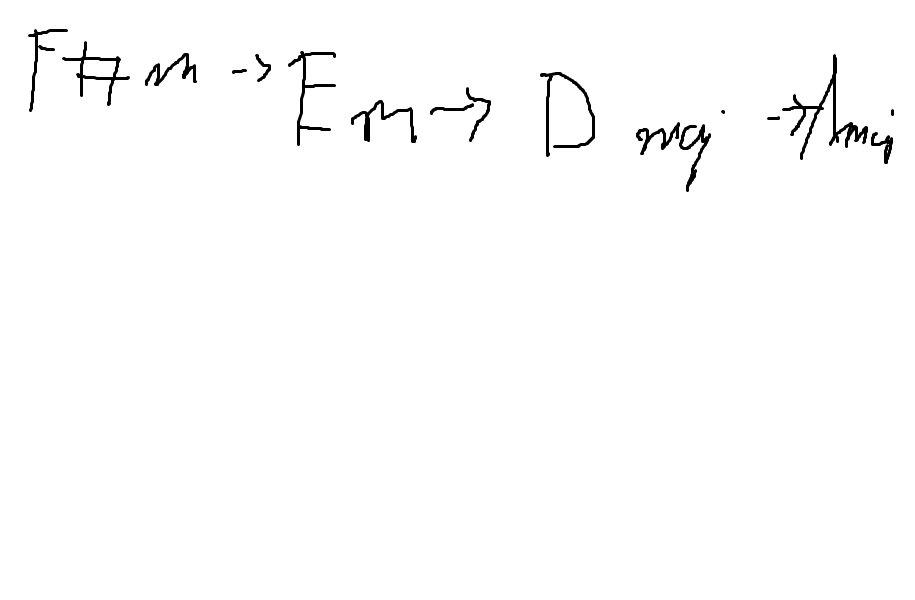 F#m -> Em -> D maj -> Amaj